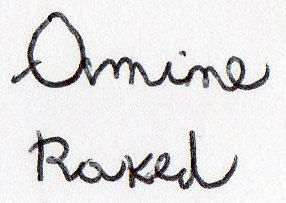 Amine
Raked